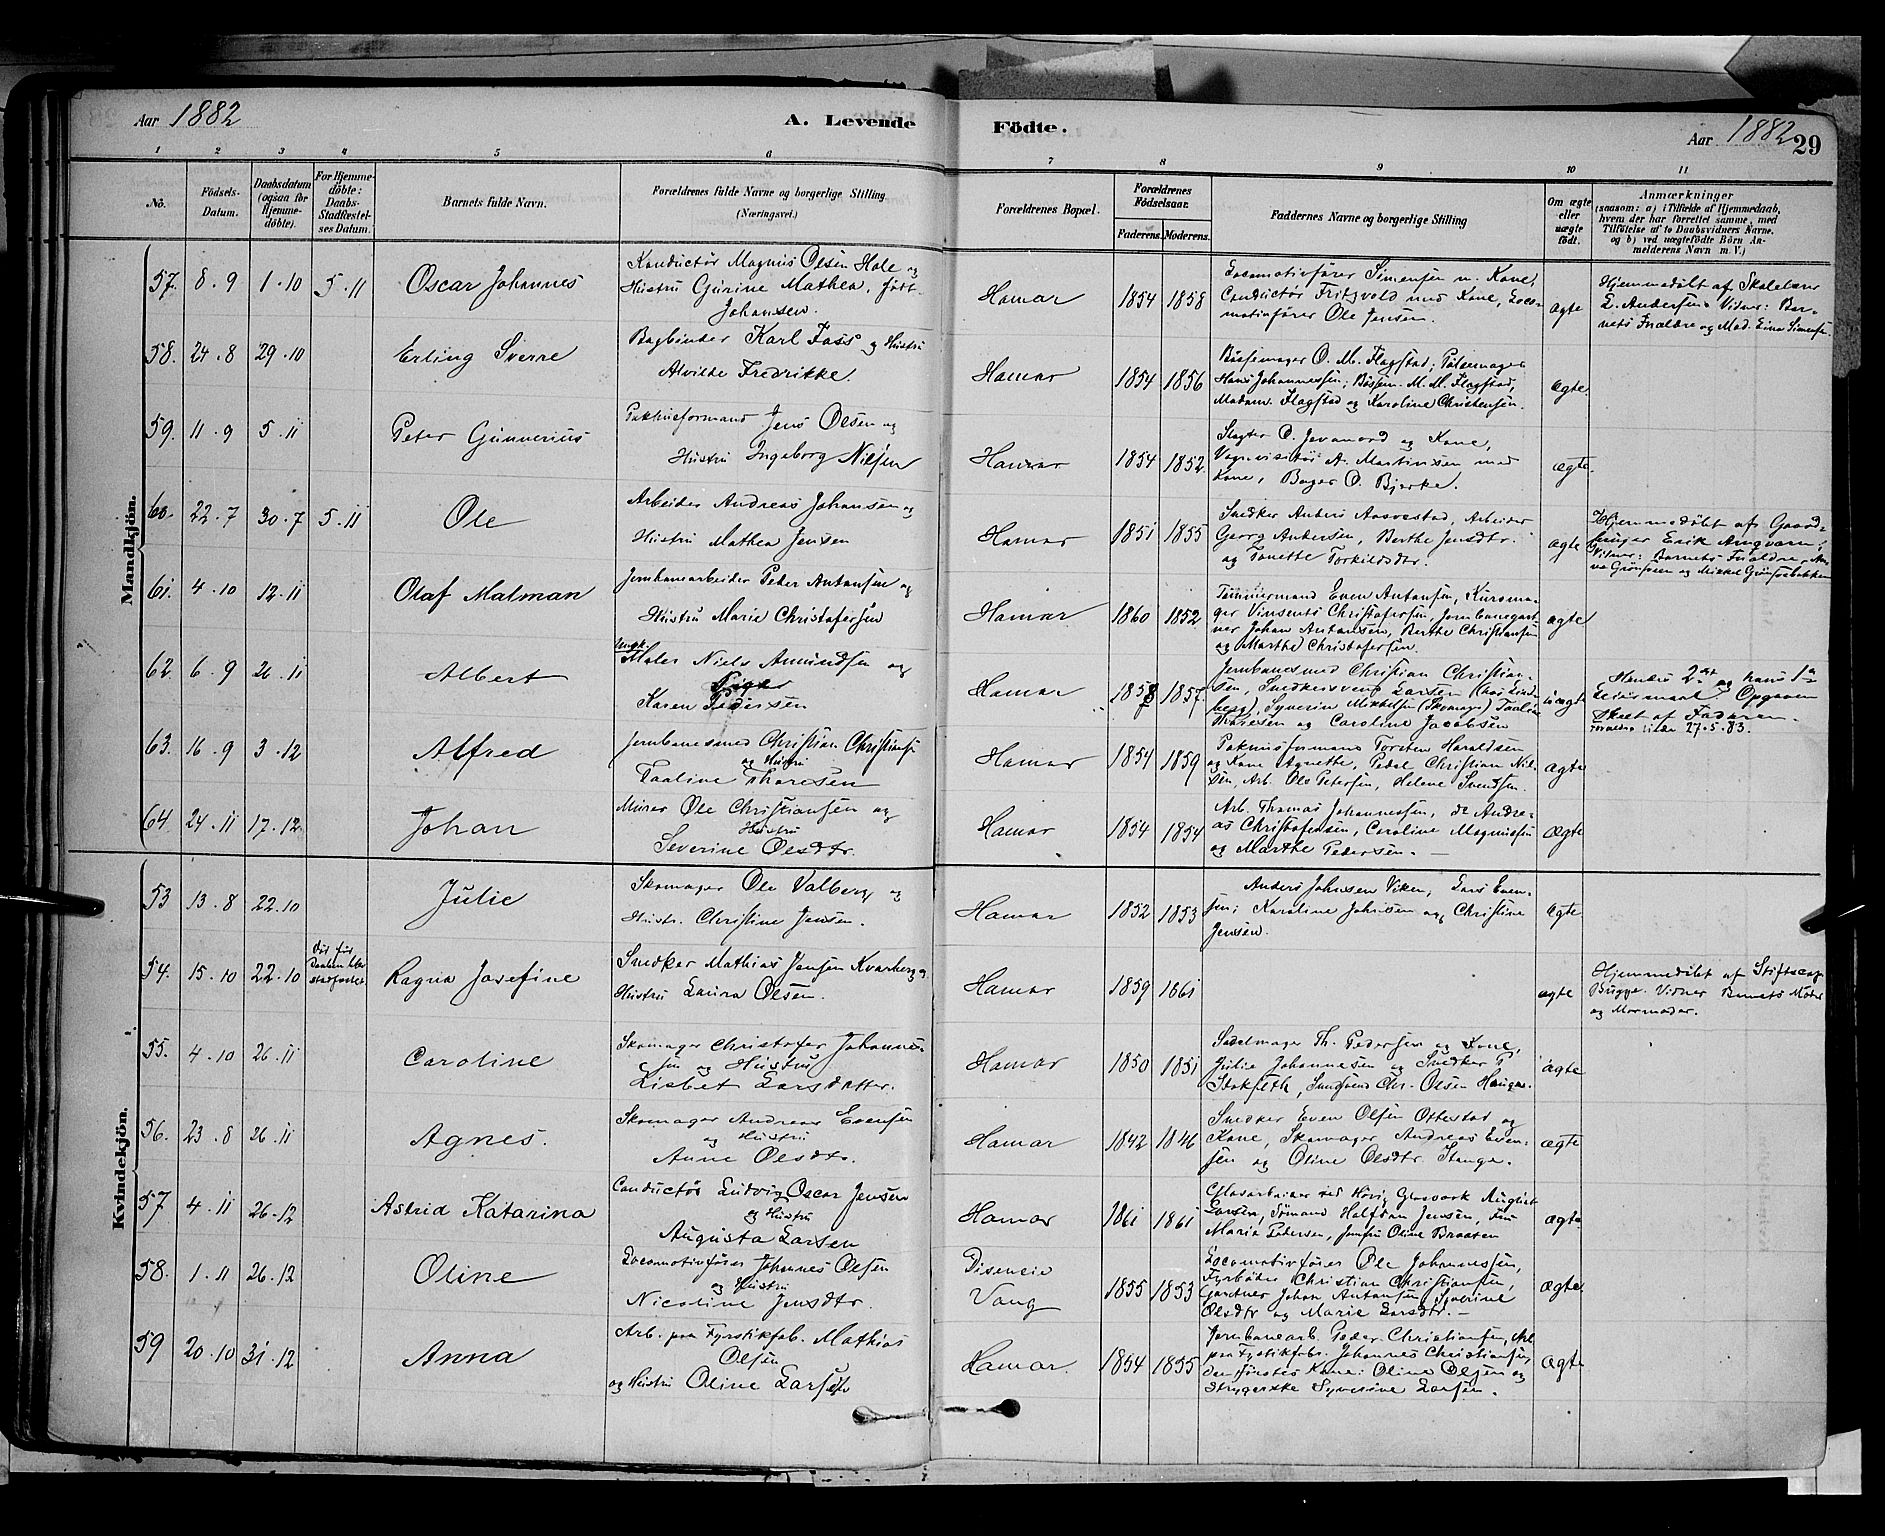 Aar 1882 A. Levende Födte. Aar 1882 29
1 2 3 4 5 6 7 8 9 10 11
No. Födsels-Datum. Daabsdatum (ogsaa for Hjemmedöbte). For Hjemmedöbte: Daabs-Stadfæstelses Datum. Barnets fulde Navn. Forældrenes fulde Navne og borgerlige Stilling (Næringsvei.) Forældrenes Bopæl. Forældrenes Födselsaar. Faderens. Moderens. Faddernes Navne og borgerlige Stilling Om ægte eller uægte födt. Anmærkninger (saasom: a) i Tilfælde af Hjemmedaab, hvem der har forrettet samme, med Tilföielse af to Daabsvidners Navne. og b) ved uægtefödte Börn Anmelderens Navn m. V.)
Mandkjön.
57. 8.9 1.10 5.11 Oscar Johannes
Conductør Magnus Olsen Hole og
Hustru Gurine Mathea, født
Johansen.
Hamar 1854 1858
Locomotivfører Simensen m. Kone,
Conductør Fritzvold med Kone, Loco-
motivfører Ole Jensen.
ægte
Hjemmedøbt af Skolelærer
L. Andersen. Vidner: Bar-
nets Forældre og Mad. Eina Simensen
58. 24.8 29.10 Erling Sverre
Bogbinder Karl Foss og Hustru
Alvilde Fredrikke.
Hamar 1854 1856
Bøssemager O. M. Flagstad; Pølsemager
Hans Johannessen; Bøssem. M. M. Flagstad,
Madam Flagstad og Karoline Christensen.
ægte
59. 11.9 5.11 Peter Gunnerius
Pakhusformand Jens Olsen og
Hustru Ingeborg Nielsen
Hamar 1854 1852
Slagter O. Jevanord og Kone,
Vognvisitør A. Martinsen med
Kone, Bager O. Bjerke.
ægte
60. 22.7 30.7 5.11 Ole
Arbeider Andreas Johansen og
Hustru Mathea Jensen
Hamar 1851 1855
Snedker Anders Aasvestad, Arbeider
Georg Andersen, Berthe Jensdtr.
og Tonette Torkildsdtr.
ægte
Hjemmedøbt af Gaard-
bruger Erik
Vidner: Barnets Forældre
og Mikkel Grønsosbakken
61. 4.10 12.11 Olaf Malman
Jernbanearbeider Peder Antonsen og
Hustru Marie Christofersen
Hamar 1860 1852
Tømmermand Even Antonsen, Kurvma-
ger Vinsents Christofersen, Jernbanegart-
ner Johan Antonsen, Berthe Christiansen
og Marthe Christofersen.
ægte
62. 6.9 26.11 Albert
Ungk.
Maler Niels Amundsen og
Pige
Karen Pedersen
Hamar 1858 1857
Jernbanesmed Christian Christian-
sen, Snedkersvend Larsen (hos Lind-
berg), Syverin Mikkelsen (Skomager) Paaline
Thoresen og Caroline Jacobsen
uægte
Hendes 2det og hans 1ste
Leiermaal. Opgaven
skeet af Faderen.
27.5.83.
63. 16.9 3.12 Alfred
Jernbanesmed Christian Christiansen
og Hustru
Paaline Thoresen
Hamar 1854 1859
Pakhusformand Torsten Haraldsen
og Kone Agnette, Pedel Christian Niel-
sen, Arb. Ole Petersen, Helene Svendsen.
ægte
64. 24.11 17.12 Johan
Murer Ole Christiansen og
Hustru
Severine Olsdtr.
Hamar 1854 1854
Arb. Thomas Johannessen, do Andre-
as Christofersen, Caroline Magnussen
og Marthe Pedersen.
Ægte
Kvindekjön.
53 13.8 22.10 Julie
Skomager Ole Valberg og
Hustr. Christine Jensen.
Hamar 1852 1853
Anders Johnsen Viken, Lars Even-
sen; Karoline Johnsen og Christine
Jensen.
ægte
54. 15.10 22.10 Ragna Josefine
Død før
Daaben blev
stadfæstet.
Snedker Mathias Jensen Kvarberg og
Hustru Laura Olsen.
Hamar 1859 1861
ægte
Hjemmedøbt af Stiftscap.
Bugge. Vidner Barnets Moder
og Mormoder.
55. 4.10 26.11 Caroline
Skomager Christofer Johannes-
sen og Hustru
Lisbet Larsdatter.
Hamar 1850 1851
Sadelmager Th. Pedersen og Kone,
Julie Johannesen og Snedker P.
Stokseth, Chr. Olsen Hauge.
ægte
56. 23.8 26.11 Agnes.
Skomager Andreas Evensen
og Hustru
Anne Olsdtr.
Hamar 1842 1846
Snedker Even Olsen Ottestad og
Kone, Skomager Andreas Even-
sen og Oline Olsdtr. Stange.
ægte
57 4.11 26.12 Astrid Katarina
Conductør Ludvig Oscar Jensen
og Hustru
Augusta Larsen
Hamar 1861 1861
Glasarbeider ved Høvig Glasværk August
Larsen, Sømand Halfdan Jensen, Fru
Marie Petersen, Jomfru Oline Braaten
ægte
58. 1.11 26.12 Oline
Locomotivfører Johannes Olsen
og Hustru
Nicoline Jensdtr.
Diseneie
Vang 1855 1853
Locomotivfører Ole Johannessen,
Fyrbøder Christian Christiansen,
Gartner Johan Antonsen, Syverine
Olsdtr og Marie Larsdtr.
Ægte
59 20.10 31.12 Anna
Arb. paa Fyrstikfab. Mathias
Olsen
og Hustru Oline Larsen
Hamar 1854 1855
Jernbanearb. Peder Christiansen, Arb.
paa Fyrstikfabr. Johannes Christiansen,
den førstes Kone: Oline Olsen og
Strygerske Syverine Larsen.
Ægte